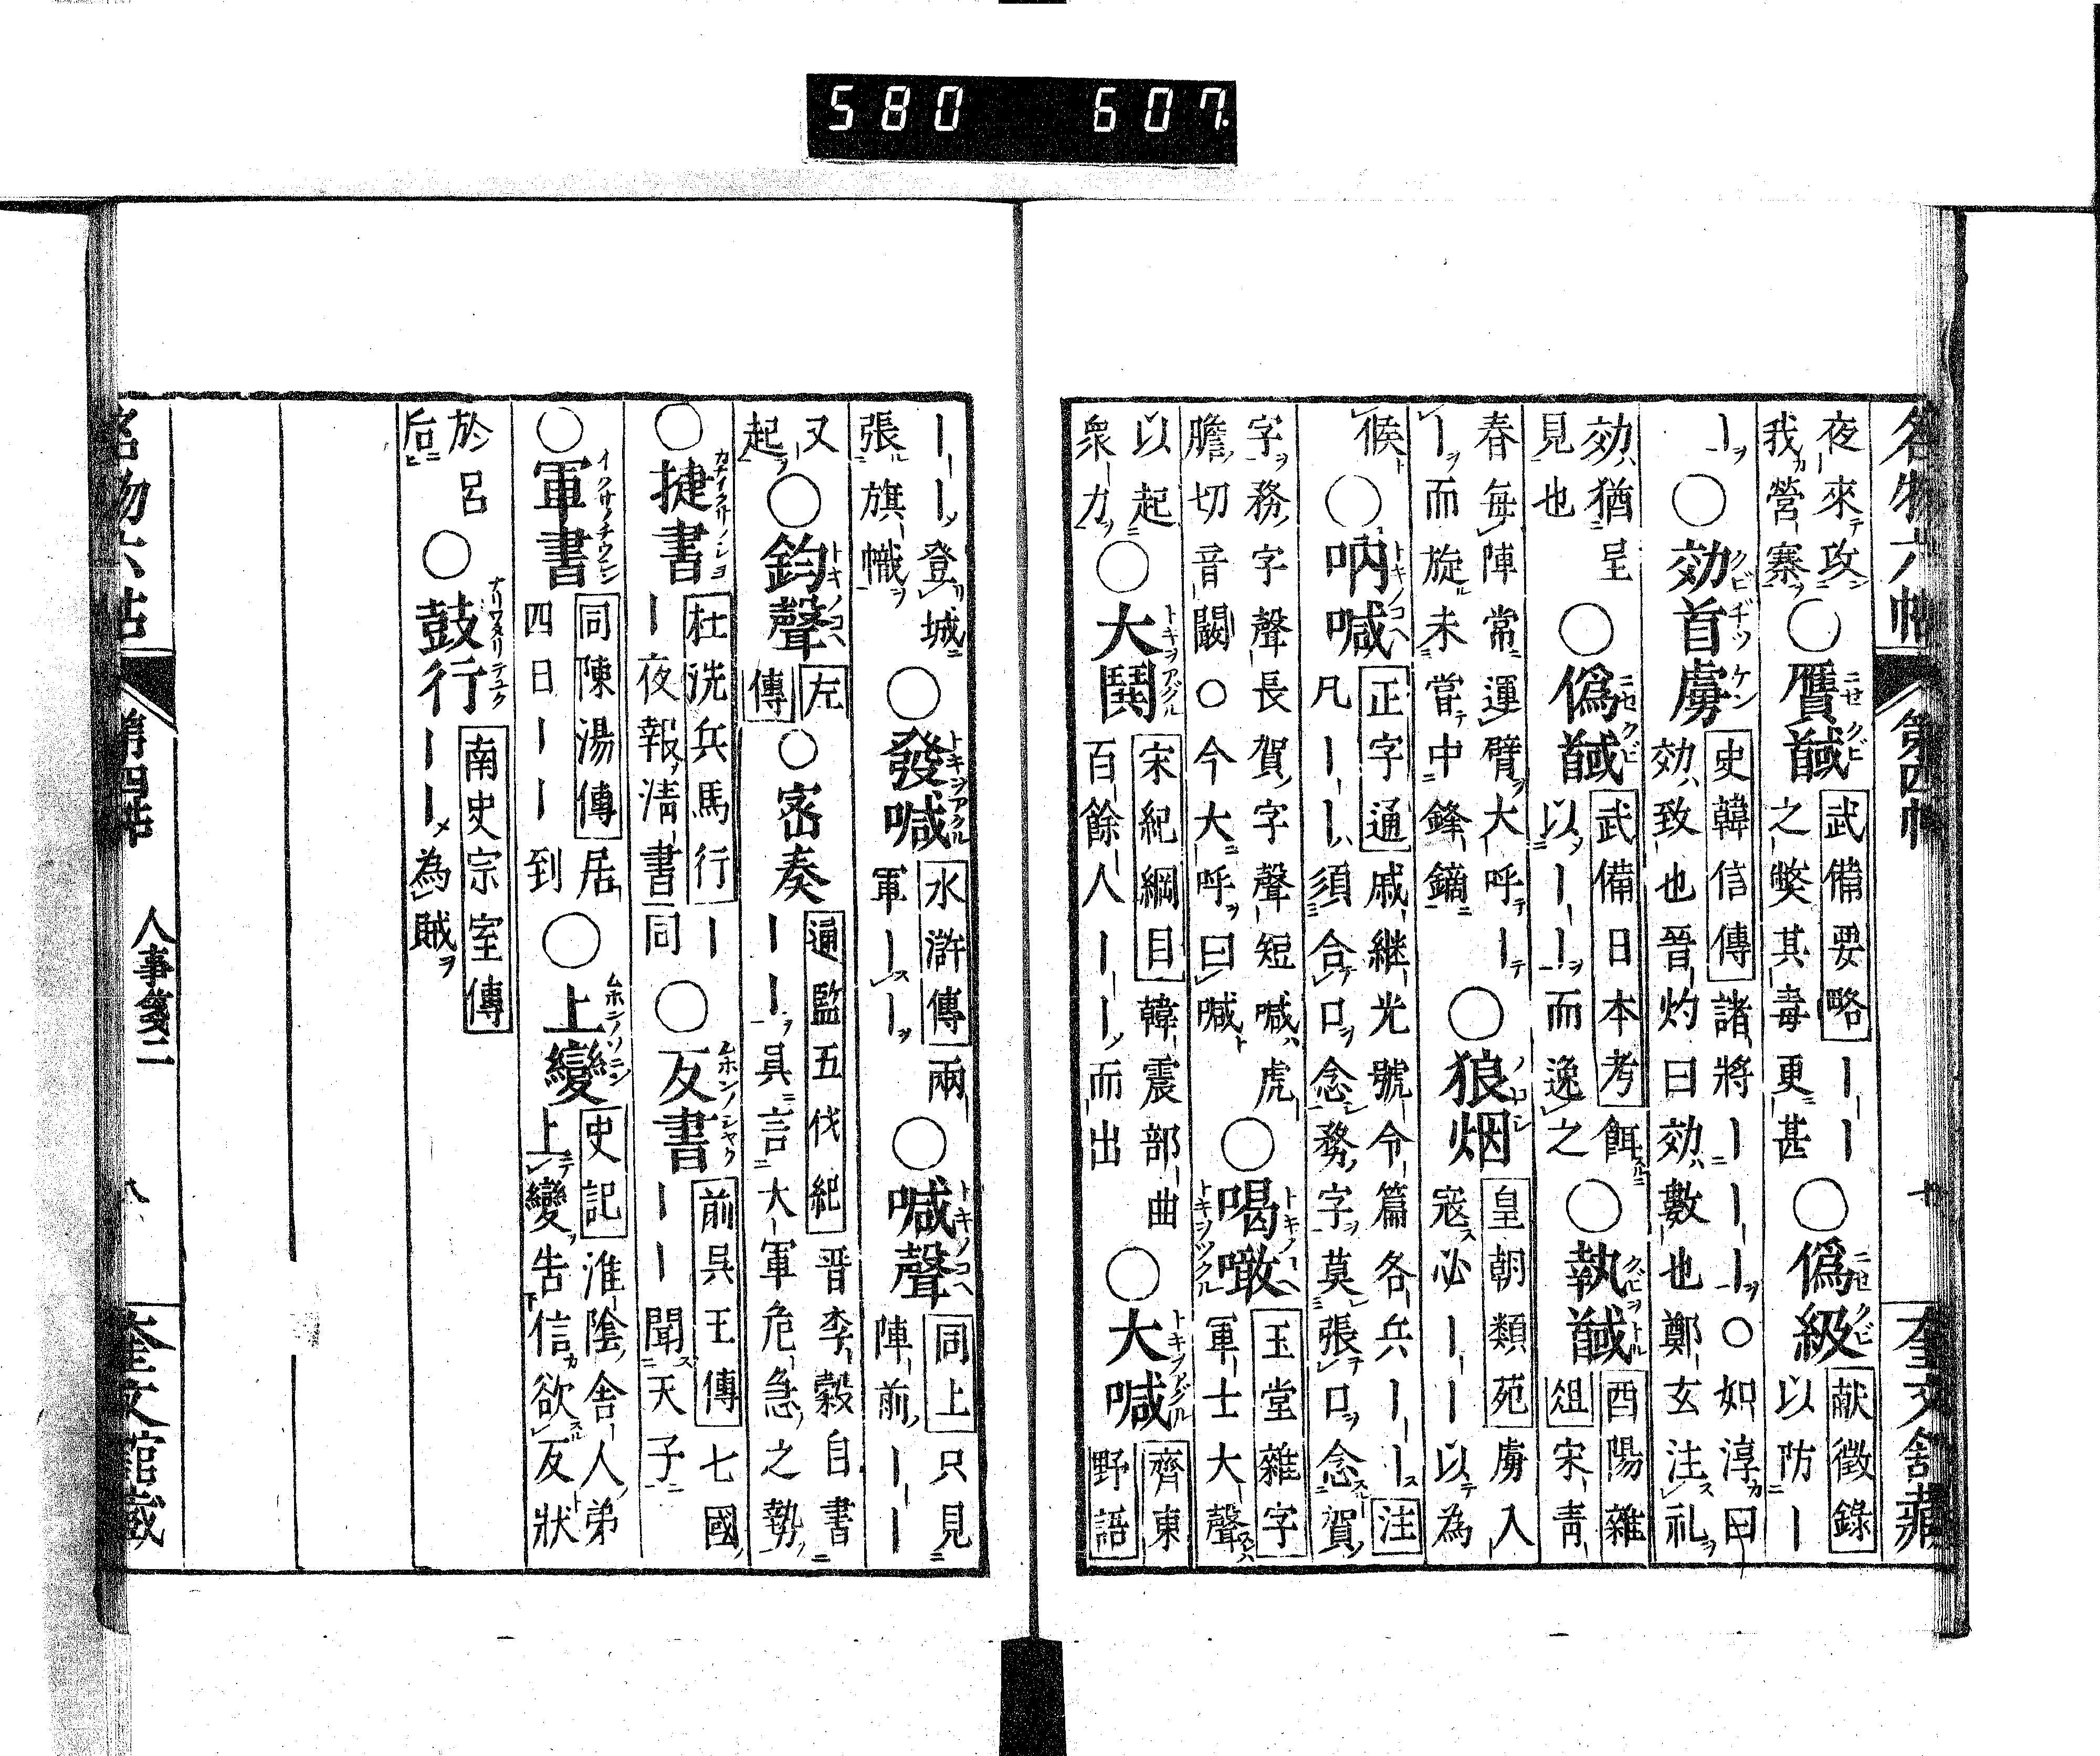 580 607
名物六帖 第四帖 七 奎文館藏
夜來攻我營寨 ○贋馘 武備要略 ｜｜之弊其毒更甚 ○偽級 献徵錄 以防｜
｜ ○効首虜 史韓信傳 諸將｜｜｜○如淳曰効致也晉灼曰効數也鄭玄注礼
効猶呈見也 ○偽馘 武備日本考 餌以｜｜而逸之 ○執馘 酉陽雜俎 宋青
春每陣常運臂大呼｜｜而旋未當中鋒鏑 ○狼烟 皇朝類苑 虜入寇必｜｜以為
候 ○吶喊 正字通 戚継光號令篇各兵｜｜注凡｜｜須合口念務字莫張口念賀
字務字聲長賀字聲短喊虎膽切音闞○今大呼曰喊 ○喝噉 玉堂雜字 軍士大聲
以起衆力 ○大鬨 宋紀綱目 韓震部曲百餘人｜｜而出 ○大喊 齊東野語
｜｜登城張旗幟 ○發喊 水滸傳 兩軍｜｜ ○喊聲 同上 只見陣前｜｜
又起 ○鈞聲 左傳 ○密奏 通監五伐紀 晋李穀自書｜｜具言大軍危急之勢
○捷書 杜洗兵馬行 ｜｜夜報清書同 ○反書 前呉王傳 七國｜｜聞天子
○軍書 同陳湯傳 居四日｜｜到 ○上變 史記 淮陰舍人弟上變告信欲反狀
於呂后 ○鼓行 南史宗室傳 ｜｜為賊
名物六帖 第四帖 人事箋二 八 奎文館藏